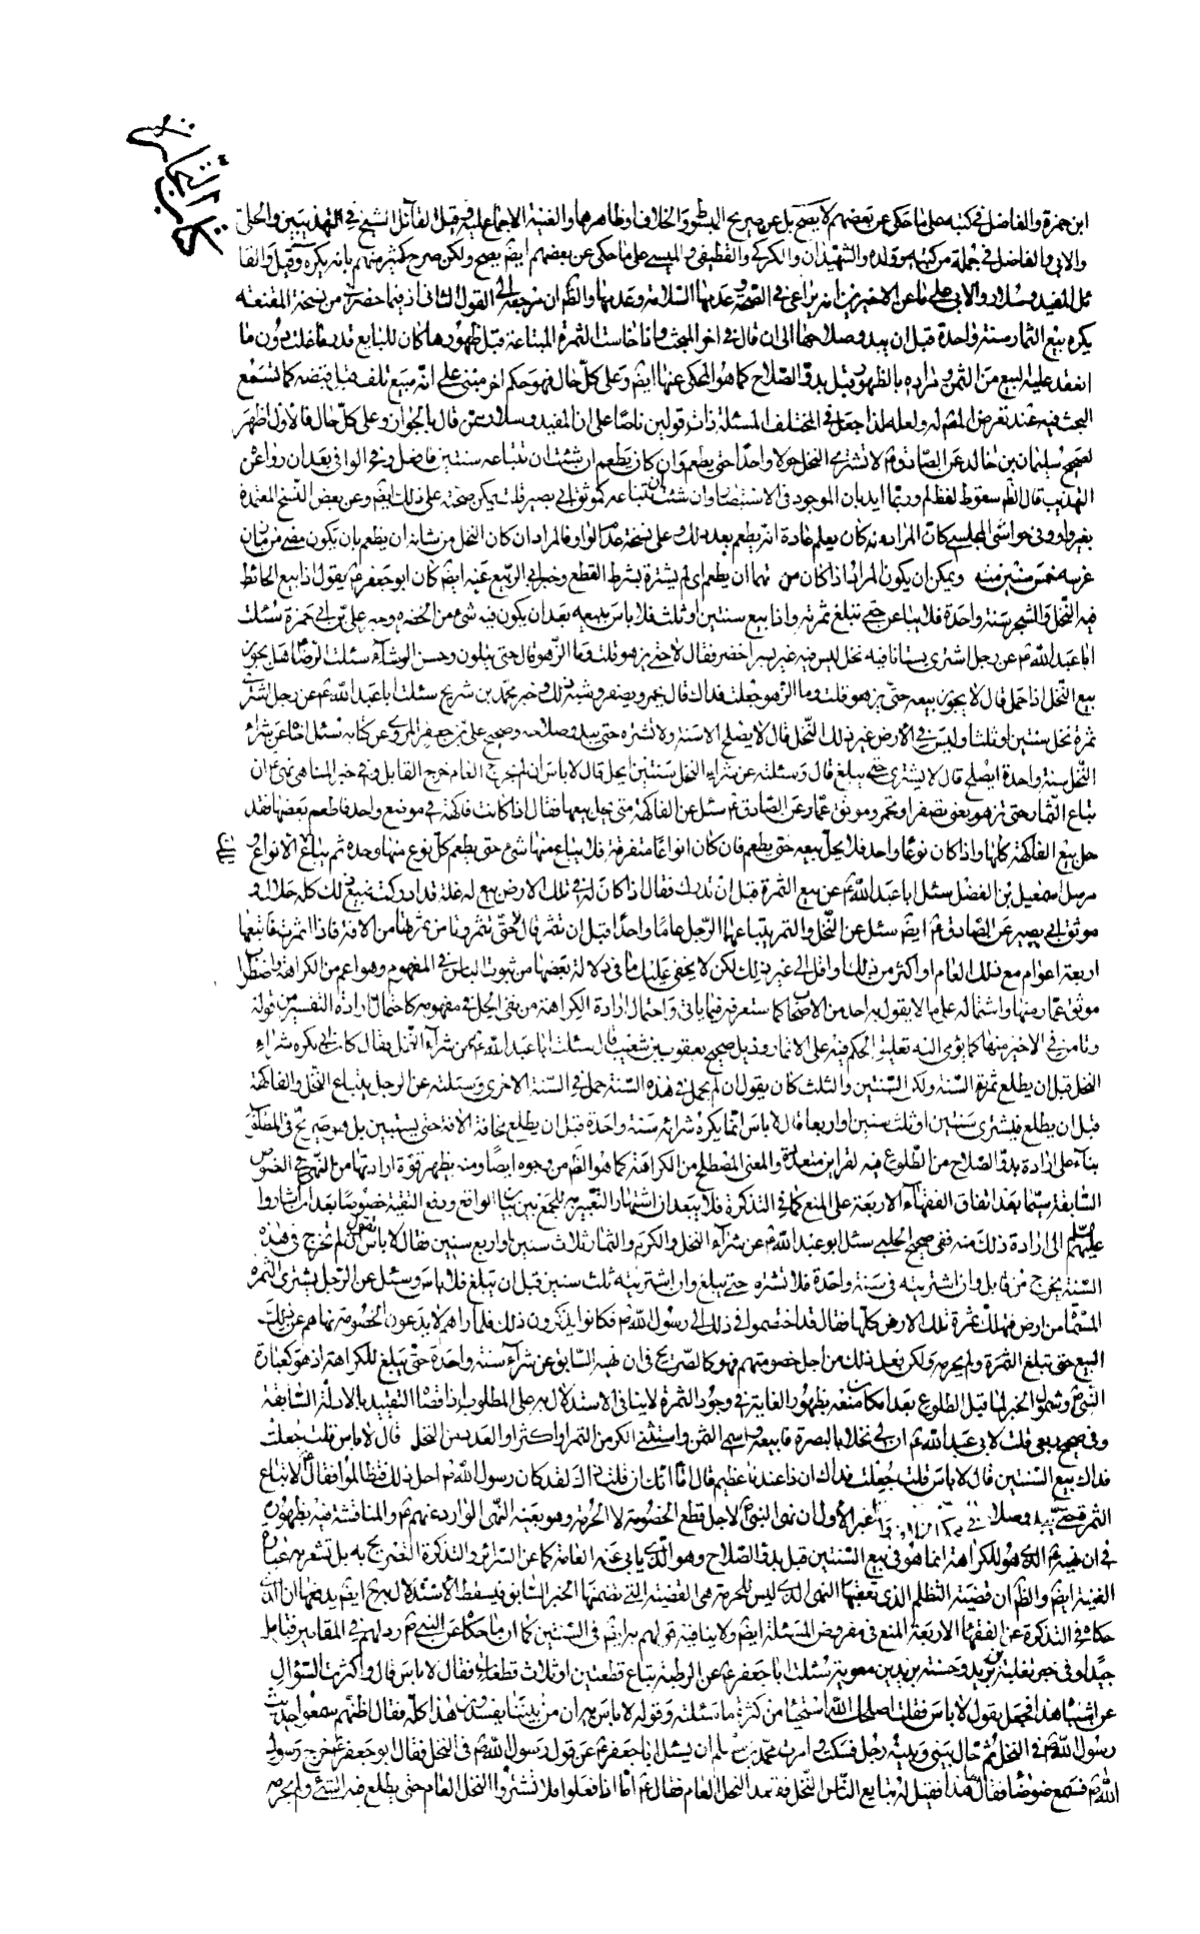 ابن حمزة والفاضل فى كتبه على ما حكى عن بعضهم لا يصح بل عن صريح المبسوط والخلاف او ظاهرهما والغنية الاجماع عليه وقيل القائل الشيخ فى التهذيبين والحلى
والابى والفاضل فى جملة من كتبه وولده والشهيدان والكركى والقطيفى والميسى على ما حكى عن بعضهم ايضم يصح ولكن صرح كثير منهم بانه يكره وقيل والقا
ئل المفيد وسلار والابى على ما عن الاخيرين انه يراعى فى الصحة وعدمها السلامة وعدمها والظم ان مرجعه الى القول الثانى اذ فيما حضرنى من نسخة المقنعة
يكره بيع الثمار سنة واحدة قبل ان يبدو صلاحها الى ان قال فى اخر المبحث واذا خاست الثمرة المبتاعة قبل ظهورها كان للبايع قدر ما غلت دون ما
انعقد عليه البيع من الثمن ومراده بالظهور قبل بدو الصلاح كما هو المحكى عنها ايضم وعلى كل حال فهو حكم اخر مبنى على انه مبيع تلف قبل قبضه كما تسمع
البحث فيه عند تعرض المصم له ولعله لذا جعل فى المختلف المسئلة ذات قولين ناصا على ان المفيد وسلار ممن قال بالجواز وعلى كل حال فالاول اظهر
لصحيح سليمان بن خالد عن الصادق م لا تشتر النخل حولا واحدا حتى يطعم وان كان يطعم ان شئت ان تبتاعه سنتين فافعل وفى الوافى بعد ان رواه عن
التهذيب قال الظم سقوط لفظ لم وربما ايد بان الموجود فى الاستبصار وان شئت ان تبتاعه كموثق ابى بصير قلت يمكن صحته على ذلك ايضم وعن بعض النسخ المعتمدة
بغير واو وفى حواشى المجلسى كان المراد انه كان يعلم عادة انه يطعم بعد ذلك وعلى نسخة عدم الواو فالمراد ان كان النخل من شانه ان يطعم بان يكون مضى من زمان
غرسه خمس سنين فمنه ويمكن ان يكون المراد اذا كان من شانها ان يطعم اى لم يشتره بشرط القطع وخبر ابى الربيع عنه ايضم كان ابو جعفر م يقول اذا بيع الحائط
فيه النخل والشجر سنة واحدة فلا يباعن حتى تبلغ ثمرته واذا بيع سنتين او ثلث فلا باس ببيعه بعد ان يكون فيه شئ من الخضرة وخبر على بن ابى حمزة سئلت
ابا عبد الله م عن رجل اشترى بستانا فيه نخل ليس فيه غير بسر اخضر فقال لا حتى يزهو قلت وما الزهو قال حتى يتلون وحسن الوشاء سئلت الرضا م هل يجوز
بيع النخل اذا حمل قال لا يجوز بيعه حتى يزهو قلت وما الزهو جعلت فداك قال يحمر ويصفر وشبه ذلك وخبر محمد بن شريح سئلت ابا عبد الله م عن رجل اشترى
ثمرة نخل سنتين او ثلثا وليس فى الارض غير ذلك النخل قال لا يصلح الا سنة ولا تشتره حتى يبدو صلاحه وصحيح على بن جعفر المروى عن كتابه سئل اخاه عن شراء
النخل سنة واحدة ايصلح قال لا يشترى حتى يبلغ قال وسئلته عن شراء النخل سنتين ايحل قال لا باس ان لم يخرج العام خرج القابل وفى خبر المناهى نهى م ان
تباع الثمار حتى تزهو يعنى تصفر او تحمر وموثق عمار عن الصادق م سئل عن الفاكهة متى يحل بيعها فقال اذا كانت فاكهة فى موضع واحد فاطعم بعضها فقد
حل بيع الفاكهة كلها واذا كان نوعا واحد فلا يحل بيعه حتى يطعم فان كان انواعا متفرقة فلا يباع منها شئ حتى يطعم كل نوع منها وحده ثم يباع الانواع و
مرسل اسمعيل بن الفضل سئل ابا عبد الله م عن بيع الثمرة قبل ان تدرك فقال اذا كان له فى تلك الارض بيع له غلة قد ادركت فبيع ذلك كله حلال و
موثق ابى بصير عن الصادق م ايضم سئل عن النخل والتمر يبتاعهما الرجل عاما واحدا قبل ان تثمر قال لا حتى تثمر وتامن ثمرتها من الافة فاذا اثمرت فابتعها
اربعة اعوام مع ذلك العام او اكثر من ذلك او اقل الى غير ذلك لكن لا يخفى عليك ما فى دلالة بعضها من ثبوت الباس فى المفهوم وهو اعم من الكراهة واضطرا
موثق عمار منها واشتماله على ما لا يقول به احد من الاصحاب كما ستعرفه فيما ياتى واحتمال ارادة الكراهة من نفى الحل فى مفهومه كاحتمال ارادة النفس من قوله
وتامن فى الاخير منها كما يؤمى اليه تعليق الحكم فيه على الاثمار وذيل صحيح يعقوب بن شعيب قال سئلت ابا عبد الله م عن شراء النخل فقال كان ابى يكره شراء
النخل قبل ان يطلع ثمرة السنة ولكن السنتين والثلث كان يقول ان لم يحمل فى هذه السنة حمل فى السنة الاخرى وسئلته عن الرجل يبتاع النخل والفاكهة
قبل ان يطلع فيشترى سنتين او ثلث سنين او اربعا قال لا باس انما يكره شرائه سنة واحدة قبل ان يطلع مخافة الافة حتى يستبين بل هو صريح فى المطلق
بناء على ارادة بدو الصلاح من الطلوع فيه لقراين متعددة والمعنى المصطلح من الكراهة كما هو الظم من وجوه ايضا ومنه يظهر قوة ارادتها من النهى فى النصوص
السابقة سيما بعد اتفاق الفقهاء الاربعة على المنع كما فى التذكرة فلا يبعد ان اشتهار التعبير به للجمع بين بيان الواقع ودفع التقية خصوصا بعد ان اشاروا
عليهم السلم الى ارادة ذلك منه ففى صحيح الحلبى سئل ابو عبد الله م عن شراء النخل والكرم والثمار ثلاث سنين او اربع سنين فقال لا باس تقول ان لم تخرج فى هذه
السنة يخرج من قابل وان اشتريته فى سنة واحدة فلا تشتره حتى يبلغ وان اشتريته ثلث سنين قبل ان يبلغ فلا باس وسئل عن الرجل يشترى الثمرة
المسماة من ارض فهلك ثمرة تلك الارض كلها فقال قد اختصموا فى ذلك الى رسول الله م فكانوا يذكرون ذلك فلما راهم لا يدعون الخصومة نهاهم عن ذلك
البيع حتى تبلغ الثمرة ولم يحرمه ولكن فعل ذلك من اجل خصومتهم فهو كالصريح فى ان نهيه السابق عن شراء سنة واحدة حتى يبلغ للكراهة اذ هو كعبارة
النبى م وشمول الخبر لما قبل الطلوع بعد امكان منعه بظهور الغاية فى وجود الثمرة لا ينافى الاستدلال به على المطلوب اذ اقصاه التقييد بالادلة السابقة
وفى صحيح ربعى قلت لابى عبد الله م ان لى نخلا بالبصرة فابيعه واسمى الثمن واستثنى الكر من التمر او اكثر او العدد من النخل قال لا باس قلت جعلت
فداك بيع السنتين قال لا باس قلت جعلت فداك ان ذا عندنا عظيم قال اما انك ان قلت ذاك لقد كان رسول الله م احل ذلك فتظالموا فقال م لا تباع
الثمرة حتى يبدو صلاحها غير الاول ان نهى النبى م لاجل قطع الخصومة لا الحرمة وهو بعينه النهى الوارد عنهم م والمناقشة فيه بظهوره
فى ان نهيه م الذى هو للكراهة انما هو فى بيع السنتين قبل بدو الصلاح وهو الذى يابى عنه العامة كما عن السرائر والتذكرة التصريح به بل تشعر به عبارة
الغنية ايضم والظم ان قضية التظلم الذى تعقبها النهى الذى ليس للحرمة هى القضية التى تضمنها الخبر السابق فيسقط الاستدلال به ح ايضم يدفعها ان الذى
حكاه فى التذكرة عن الفقهاء الاربعة المنع فى مفروض المسئلة ايضم ولا ينافيه قولهم به ايضم فى السنتين كما ان ما حكاه عن النبى م رد لهم فى المقامين فتامل
جيدا وفى خبر ثعلبة بن بريد وحسنة بريد بن معوية سئلت ابا جعفر م عن الرطبة تباع قطعتين او ثلاث قطعات فقال لا باس قال واكثرت السؤال
عن اشباه هذا فجعل يقول لا باس فقلت اصلحك الله استحياء من كثرة ما سئلته وقوله لا باس به ان من يلينا يفسدون هذا كله فقال اظنهم سمعوا حديث
رسول الله م فى النخل ثم حال بينى وبينه رجل فسكت وامرت محمد بن مسلم ان يسئل ابا جعفر م عن قول رسول الله م فى النخل فقال ابو جعفر م خرج رسول
الله م فسمع ضوضاء فقال ما هذا فقيل له تبايع الناس النخل فقعد النخل العام فقال م اما اذا فعلوا فلا تشتروا النخل العام حتى يطلع فيه الشئ ولم يحرمه